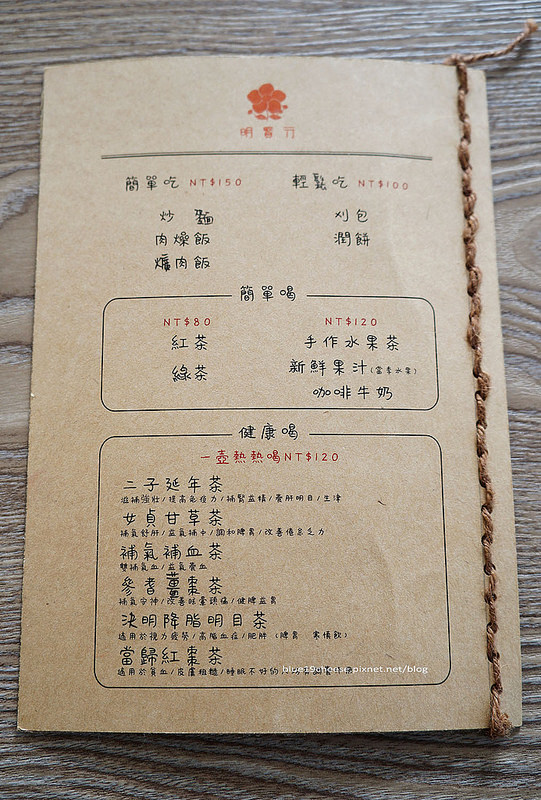 明晋行
簡單吃 NT$150
炒 麵
肉燥飯
爌肉飯
輕鬆吃 NT$100
刈包
潤餅
簡單喝
NT$80
紅茶
綠茶
NT$120
手作水果茶
新鮮果汁(當季水果)
咖啡牛奶
健康喝
一壺熱熱喝NT$120
三子延年茶
滋補強壯/提高免疫力/補腎益精/養肝明目/生津
女貞甘草茶
補氣舒肝/益氣補中/調和脾胃/改善倦怠乏力
補氣補血茶
雙補氣血/益氣養血
參耆薑棗茶
補氣安神/改善眩暈頭痛/健脾益胃
決明降脂明目茶
適用於視力疲勞/高脂血症/肥胖 (脾胃 寒慎飲)
當歸紅棗茶
適用於貧血/皮膚粗糙/睡眠不好的
blue19cheese.pixnet.net/blog